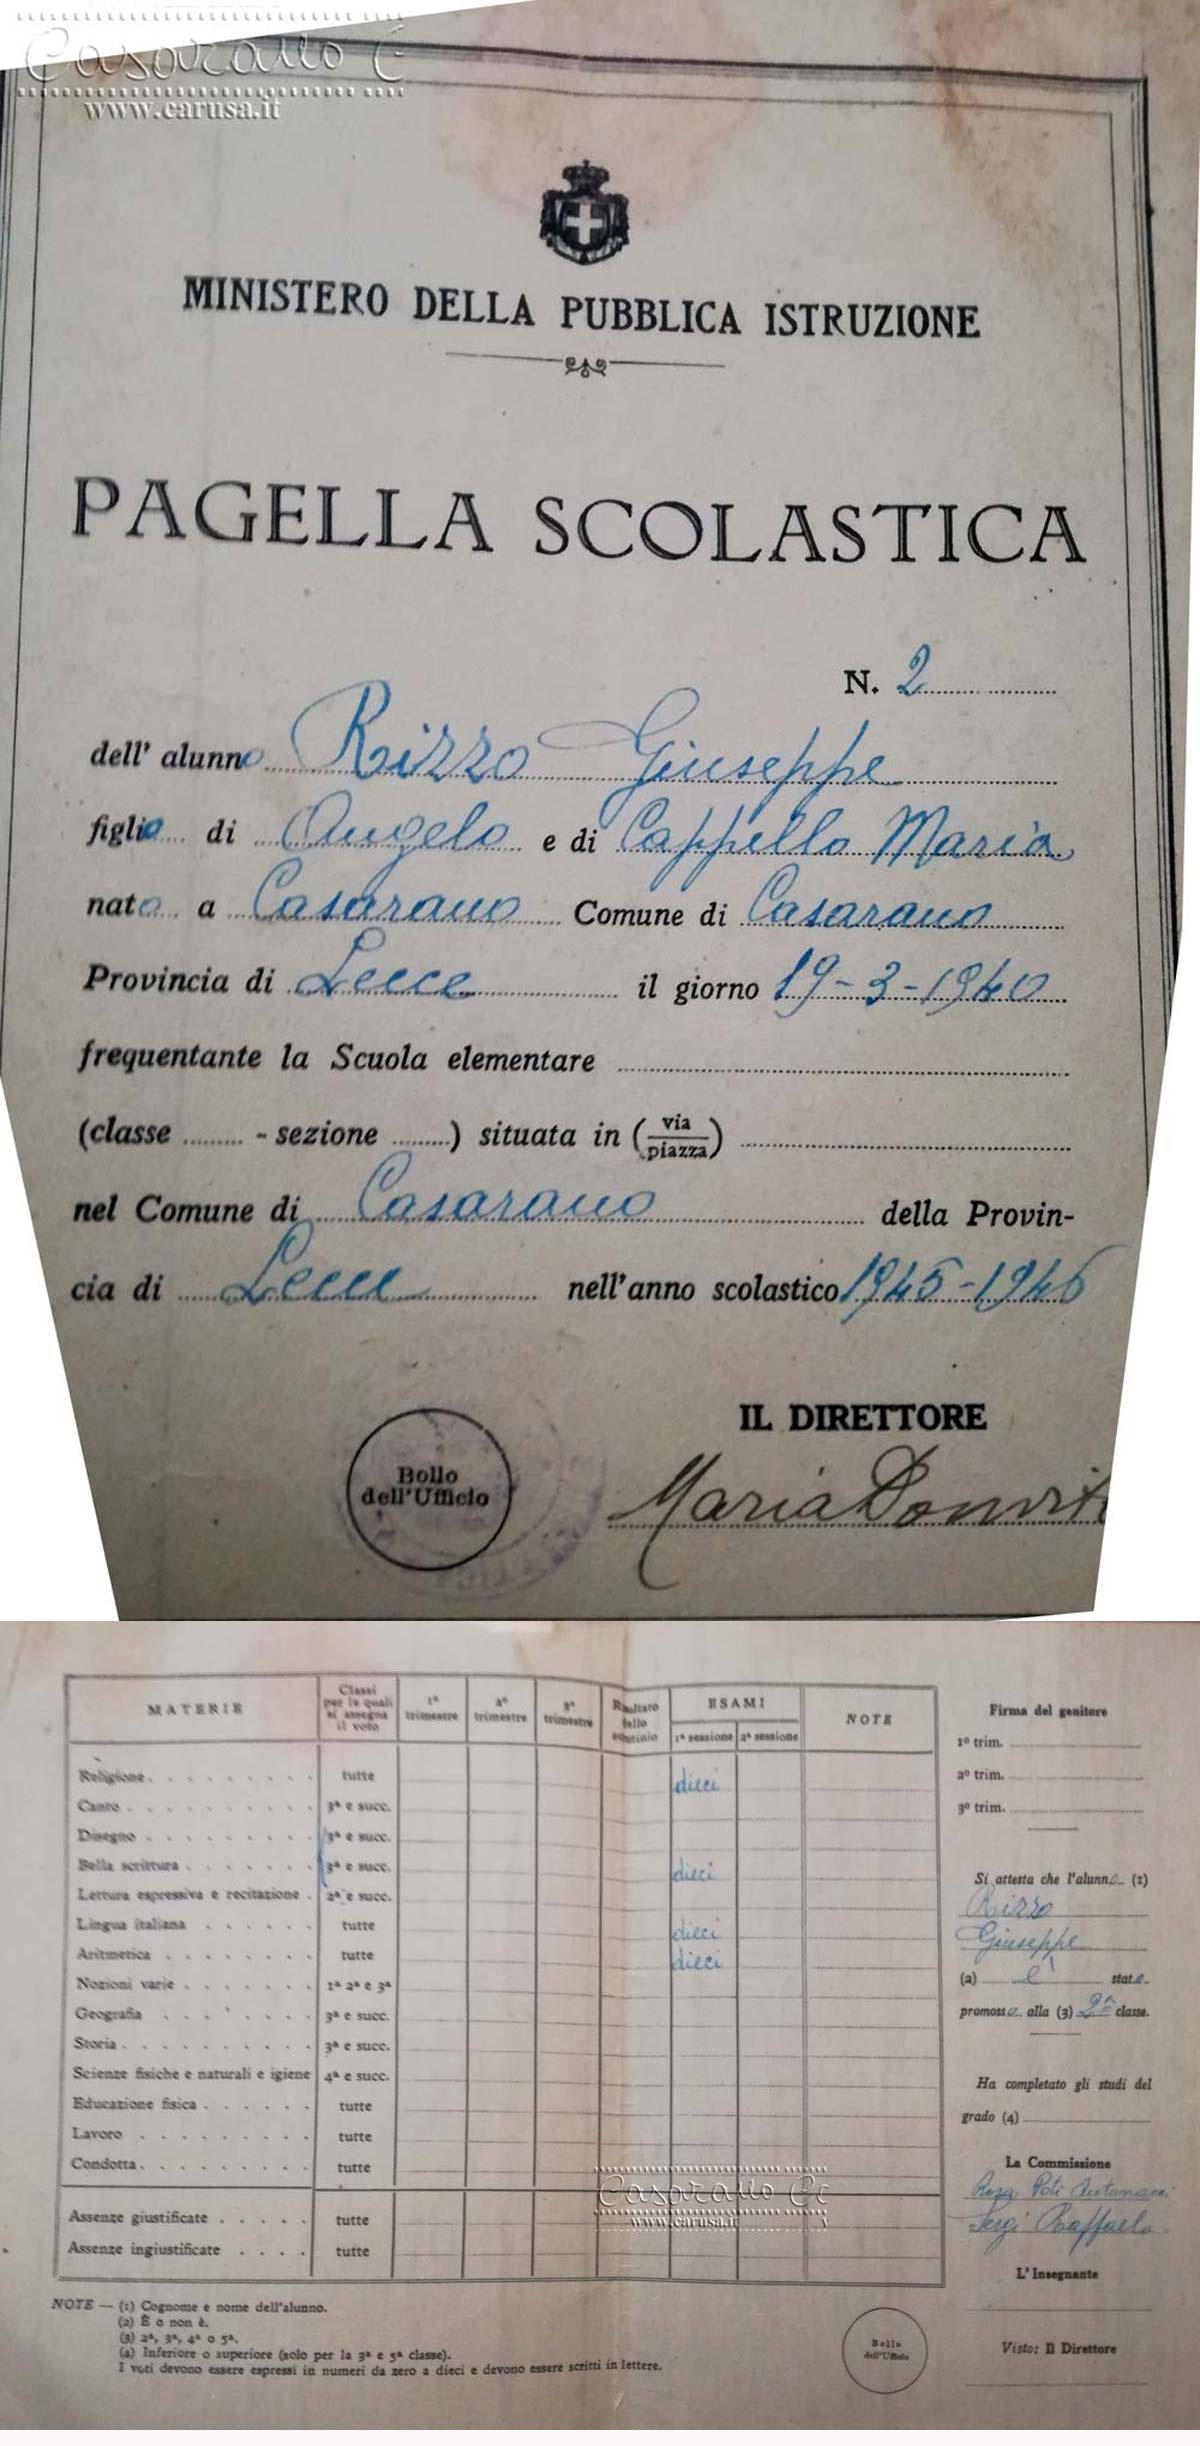 Casarano C
www.carusa.it
MINISTERO DELLA PUBBLICA ISTRUZIONE
PAGELLA SCOLASTICA
N. 2
dell' alunno Rizzo Giuseppe
figlio di Angelo e di Cappello Maria
nato a Casarano Comune di Casarano
Provincia di Lecce il giorno 19-3-1940
frequentante la Scuola elementare
(classe - sezione ) situata in (via/piazza)
nel Comune di Casarano della Provin-
cia di Lecce nell'anno scolastico 1945-1946
IL DIRETTORE
Bollo
dell'Ufficio
Maria Donvit
MATERIE Classi per le quali si assegna il voto 1º trimestre 2º trimestre 3º trimestre Risultato dello scrutinio ESAMI 1ª sessione 2ª sessione NOTE
Religione tutte dieci
Canto 3ª e succ.
Disegno 3ª e succ.
Bella scrittura 3ª e succ. dieci
Lettura espressiva e recitazione 2ª e succ.
Lingua italiana tutte dieci
Aritmetica tutte dieci
Nozioni varie 1ª 2ª e 3ª
Geografia 3ª e succ.
Storia 3ª e succ.
Scienze fisiche e naturali e igiene 4ª e succ.
Educazione fisica tutte
Lavoro tutte
Condotta tutte
Assenze giustificate tutte
Assenze ingiustificate tutte
Casarano Cc
www.carusa.it
NOTE — (1) Cognome e nome dell'alunno.
(2) È o non è.
(3) 2ª, 3ª, 4ª o 5ª.
(4) Inferiore o superiore (solo per la 3ª e 5ª classe).
I voti devono essere espressi in numeri da zero a dieci e devono essere scritti in lettere.
Firma del genitore
1º trim.
2º trim.
3º trim.
Si attesta che l'alunno (1)
Rizzo
Giuseppe
(2) è stato
promosso alla (3) 2ª classe.
Ha completato gli studi del
grado (4)
La Commissione
Rosa Poti
Sergi Raffaela
L'Insegnante
Bollo
dell'Ufficio
Visto: Il Direttore